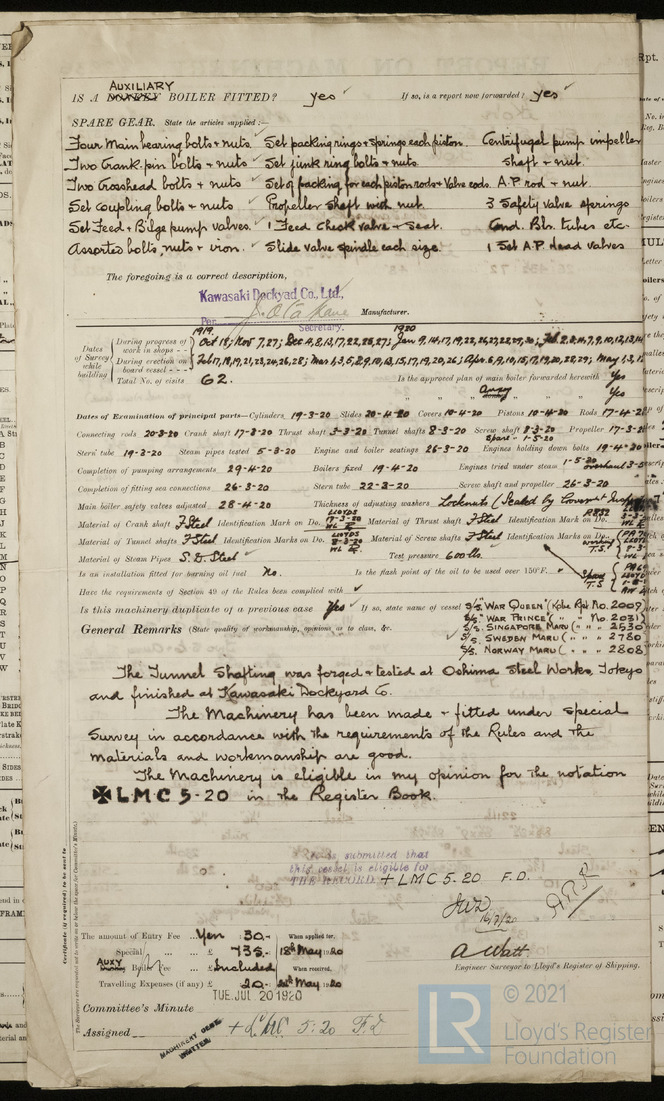 AUXILIARY
IS A DONKEY BOILER FITTED? Yes If so, is a report now forwarded? Yes
SPARE GEAR. State the articles supplied:—
Four Main bearing bolts & nuts. Set packing rings & springs each piston. Centrifugal pump impeller
Two Crank pin bolts & nuts Set junk ring bolts & nuts. shaft & nut.
Two Crosshead bolts & nuts Set of packing for each piston rods & Valve rods. A.P. rod & nut.
Set coupling bolts & nuts. Propeller shaft with nut. 3 Safety valve springs
Set Feed & Bilge pump valves. 1 Feed Check valve & Seat. Cond. Blr. tubes etc.
Assorted bolts, nuts & iron. Slide valve spindle each size. 1 Set A.P. Head Valves
The foregoing is a correct description,
Kawasaki Dockyad Co., Ltd.,
Per Manufacturer.
Secretary.
1919 1920
Dates of Survey while building
During progress of work in shops - - Oct 18; Nov 7, 27; Dec 4, 8, 13, 17, 22, 25, 27; Jan 9, 14, 17, 19, 22, 26, 27, 28, 29, 30;
During erection on board vessel - - - Feb 17, 18, 19, 21, 23, 24, 26, 28; Mar 1, 3, 5, 8, 9, 10, 13, 15, 17, 19, 20, 26; Apr. 6, 9, 10, 15, 17, 19, 20, 28, 29; May 1, 3,
Total No. of visits 62. Is the approved plan of main boiler forwarded herewith Yes
" " " Auxy donkey " " " Yes
Dates of Examination of principal parts—Cylinders 19-3-20 Slides 20-4-20 Covers 10-4-20 Pistons 10-4-20 Rods 17-4-2
Connecting rods 20-3-20 Crank shaft 17-3-20 Thrust shaft 3-3-20 Tunnel shafts 8-3-20 Screw shaft 8-3-20 Propeller 17-3-2
Spare - 1-5-20
Stern tube 19-3-20 Steam pipes tested 5-3-20 Engine and boiler seatings 26-3-20 Engines holding down bolts 19-4-20
Completion of pumping arrangements 29-4-20 Boilers fixed 19-4-20 Engines tried under steam 1-5-20
Completion of fitting sea connections 26-3-20 Stern tube 22-3-20 Screw shaft and propeller 26-3-20
Main boiler safety valves adjusted 28-4-20 Thickness of adjusting washers Locknuts (Sealed by
Material of Crank shaft I Steel Identification Mark on Do. LLOYDS 17-3-20 Material of Thrust shaft I Steel Identification Mark on Do.
Material of Tunnel shafts I Steel Identification Marks on Do. LLOYDS 8-3-20 Material of Screw shafts I Steel Identification Marks on Do.
Material of Steam Pipes S.D. Steel Test pressure 600 lbs.
Is an installation fitted for burning oil fuel No. Is the flash point of the oil to be used over 150°F. Spare T.S.
Have the requirements of Section 49 of the Rules been complied with
Is this machinery duplicate of a previous case Yes If so, state name of vessel S/S "WAR QUEEN" (Kobe Rpt No. 2009)
S/S. "WAR PRINCE" ( " " No 2031)
General Remarks (State quality of workmanship, opinions as to class, &c. S/S. SINGAPORE MARU ( " " " 2530
S/S. SWEDEN MARU ( " " " 2780
S/S. NORWAY MARU ( " " " 2808
The Tunnel Shafting was forged & tested at Oshima Steel Works, Tokyo
and finished at Kawasaki Dockyard Co.
The Machinery has been made & fitted under Special
Survey in accordance with the requirements of the Rules and the
materials and workmanship are good.
The Machinery is eligible in my opinion for the notation
✠ LMC 5-20 in the Register Book.
It is submitted that
this vessel is eligible for
THE RECORD + LMC 5.20 F.D.
JWD
16/7/20
The amount of Entry Fee Yen 30.- When applied for,
Special £ 735.- 18th May 1920
Auxy Donkey Boiler Fee £ Included When received,
Travelling Expenses (if any) £ 20.- May 1920
A Watt
Engineer Surveyor to Lloyd's Register of Shipping.
TUE. JUL. 20 1920
Committee's Minute
Assigned + LMC 5.20 F.D.
MACHINERY CERT. WRITTEN
LR © 2021
Lloyd's Register
Foundation